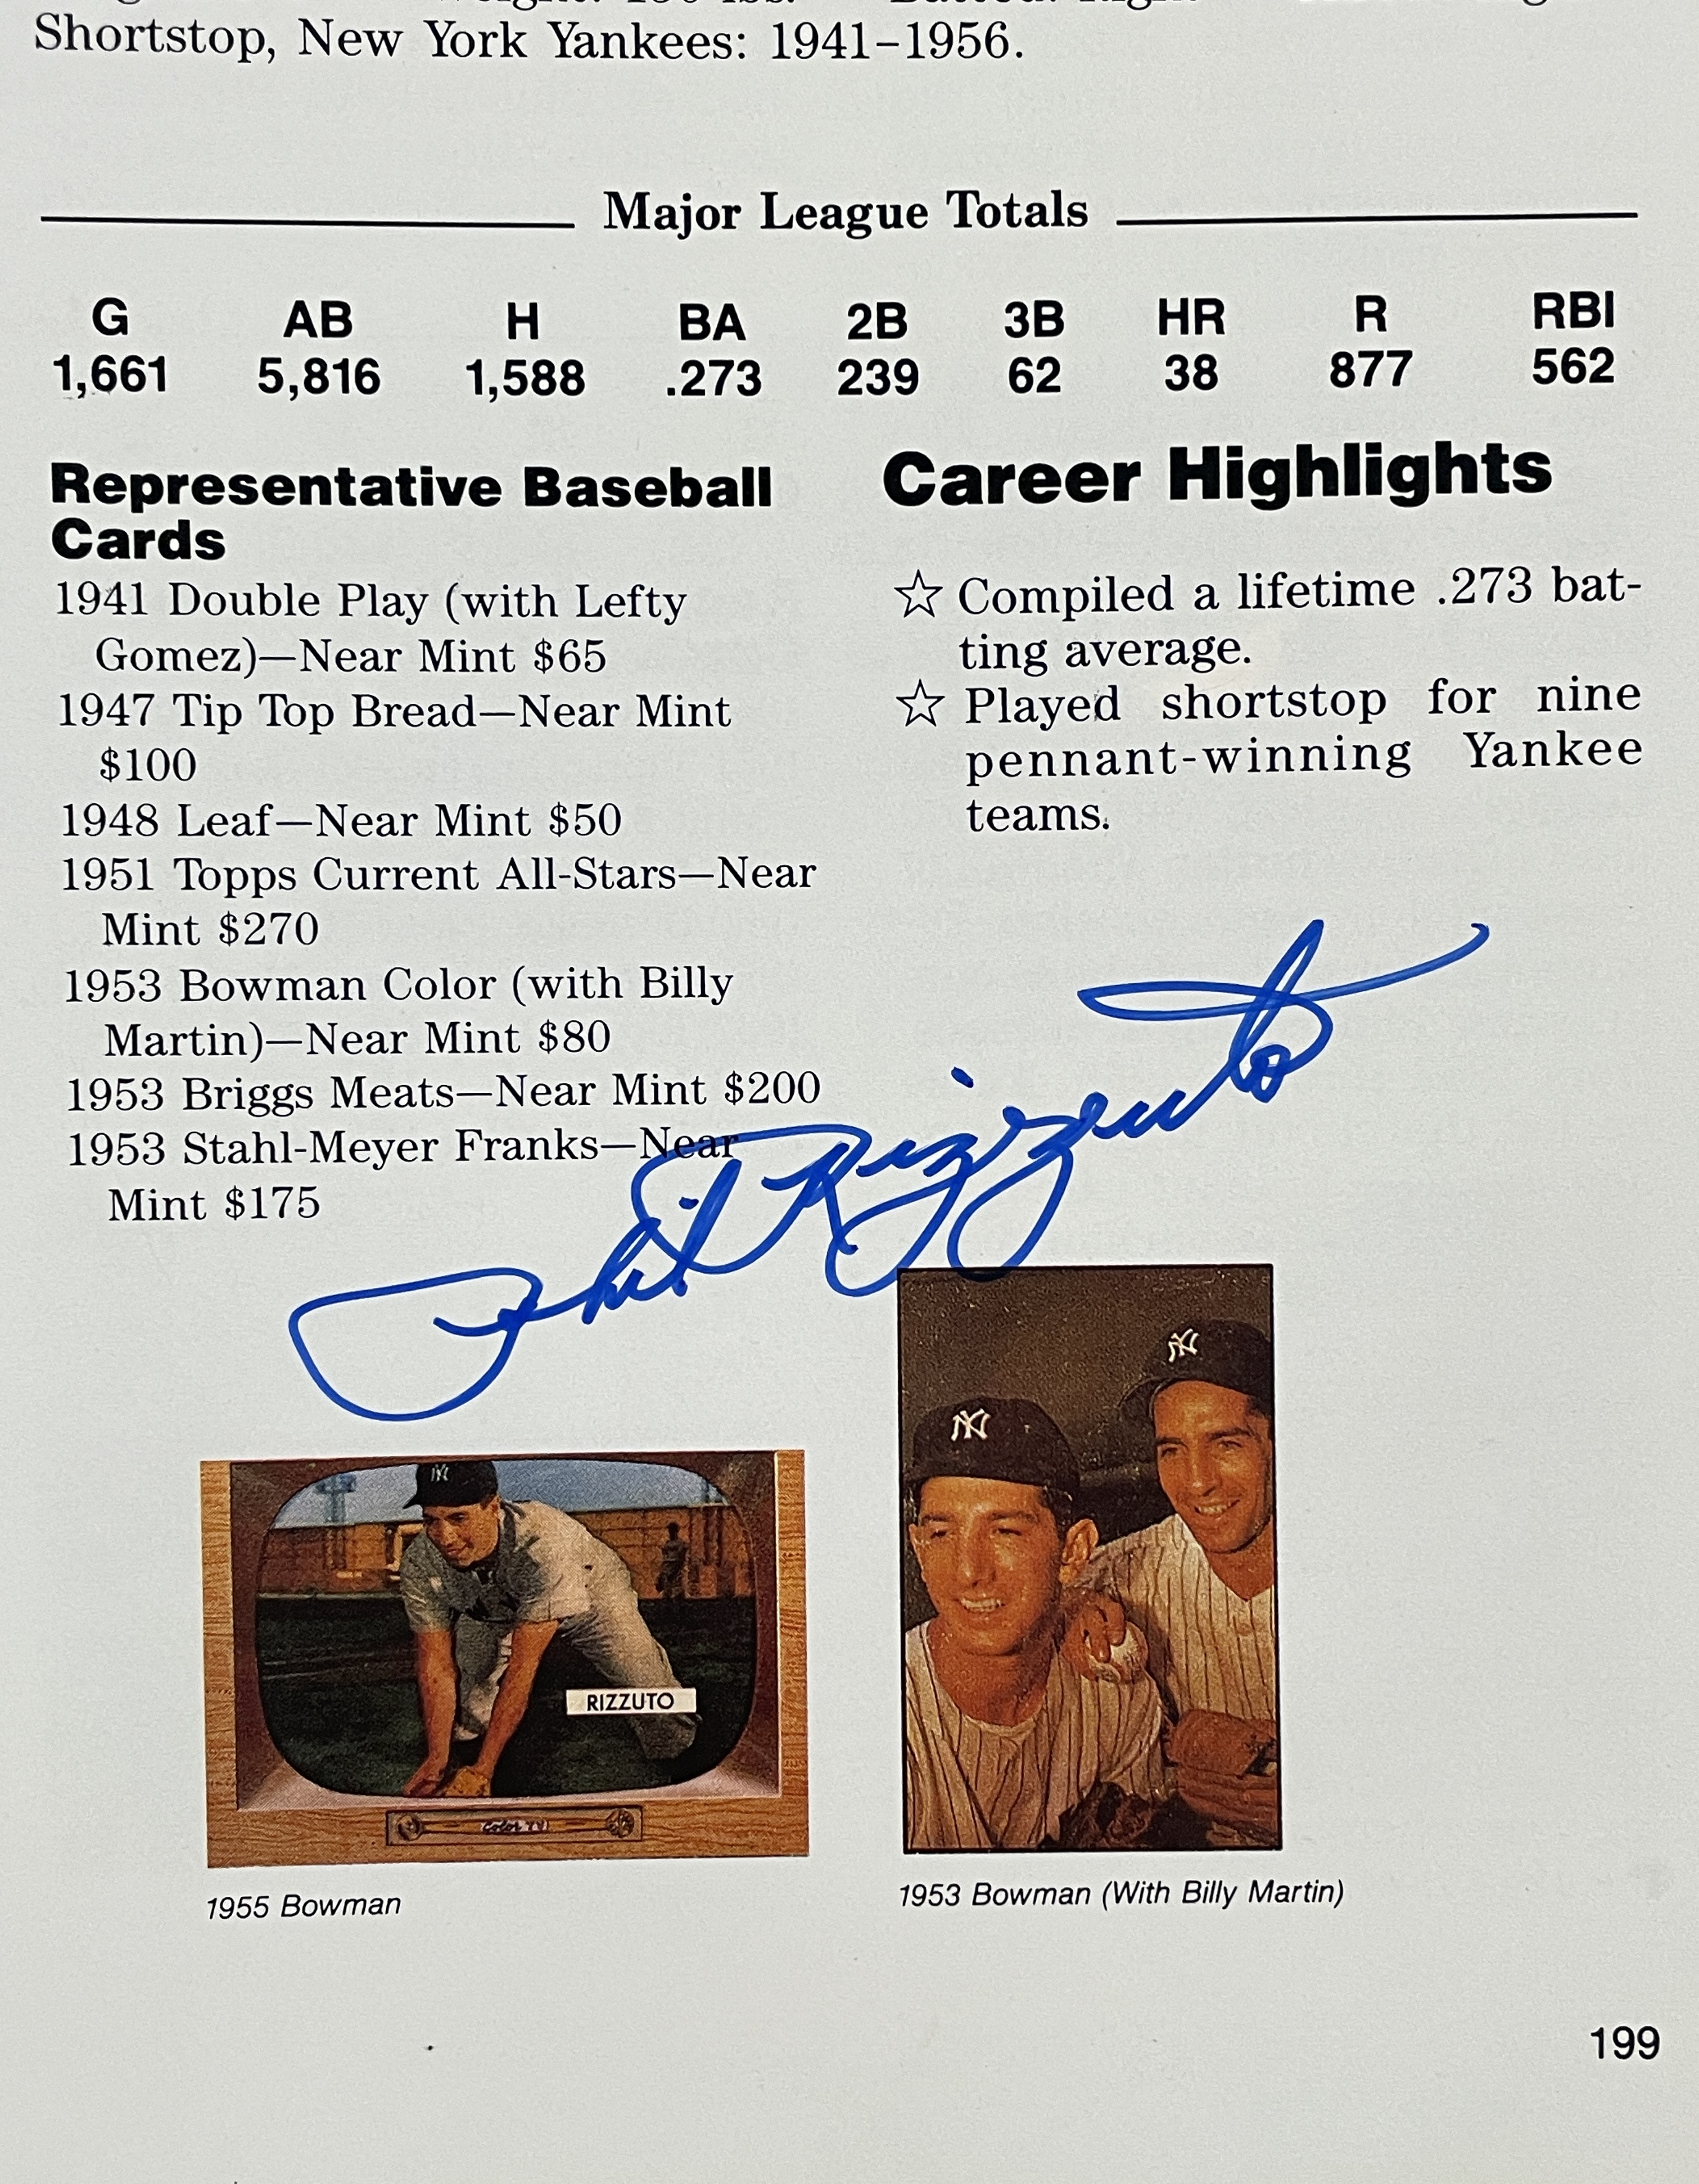 Shortstop, New York Yankees: 1941–1956.
Major League Totals
G AB H BA 2B 3B HR R RBI
1,661 5,816 1,588 .273 239 62 38 877 562
Representative Baseball
Cards
1941 Double Play (with Lefty
Gomez)—Near Mint $65
1947 Tip Top Bread—Near Mint
$100
1948 Leaf—Near Mint $50
1951 Topps Current All-Stars—Near
Mint $270
1953 Bowman Color (with Billy
Martin)—Near Mint $80
1953 Briggs Meats—Near Mint $200
1953 Stahl-Meyer Franks—Near
Mint $175
Career Highlights
☆ Compiled a lifetime .273 bat-
ting average.
☆ Played shortstop for nine
pennant-winning Yankee
teams.
Phil Rizzuto
NY
RIZZUTO
Color TV
1955 Bowman
NY
NY
1953 Bowman (With Billy Martin)
199